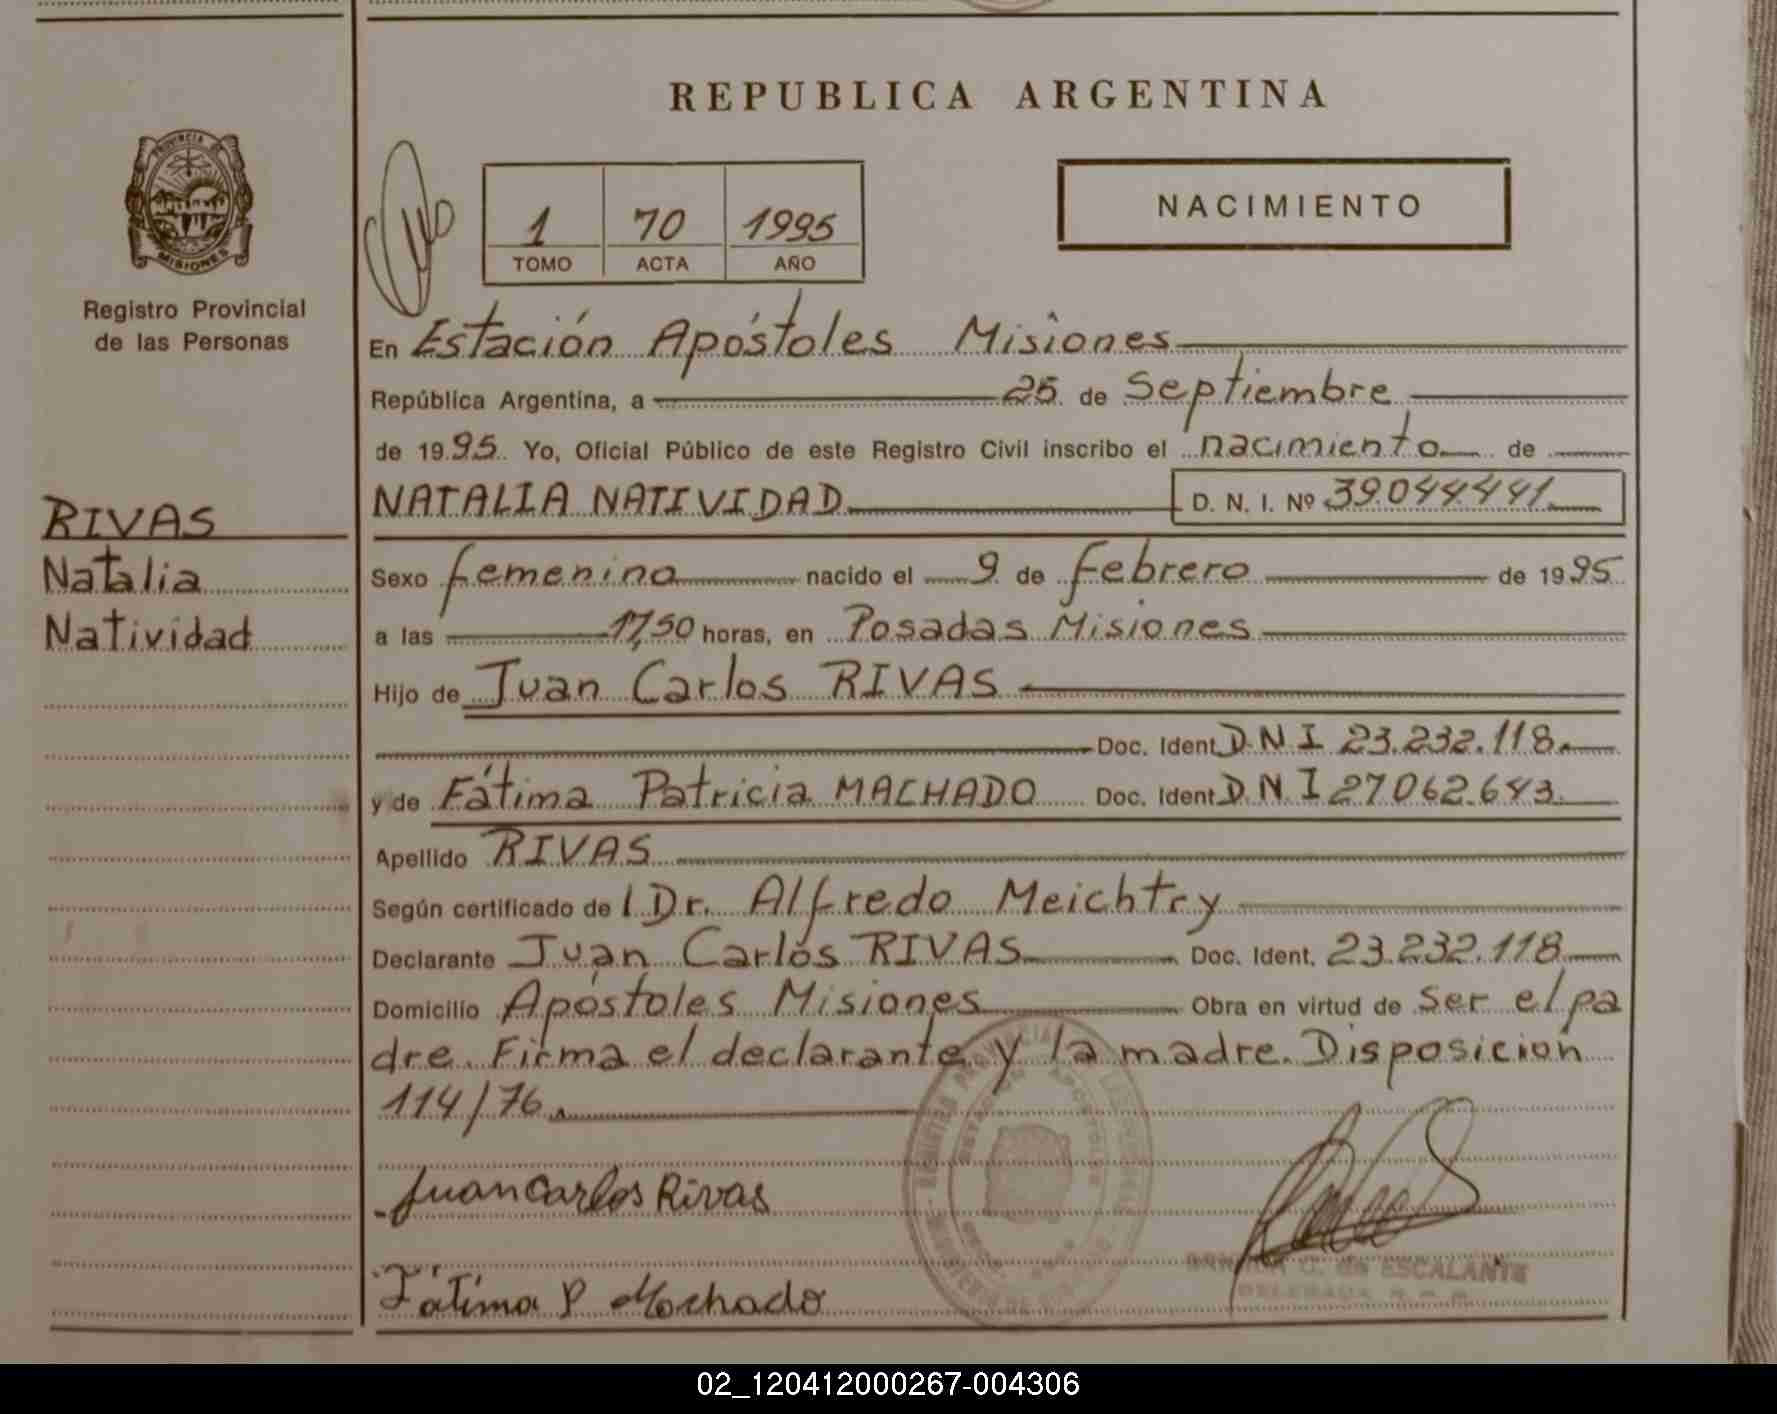 REPUBLICA ARGENTINA
PROVINCIA DE
MISIONES
Registro Provincial
de las Personas
1 70 1995
TOMO ACTA AÑO
NACIMIENTO
En Estación Apóstoles Misiones
República Argentina, a 25 de Septiembre
de 1995. Yo, Oficial Público de este Registro Civil inscribo el nacimiento de
NATALIA NATIVIDAD D. N. I. Nº 39.044.441
RIVAS
Natalia
Natividad
Sexo femenino nacido el 9 de febrero de 1995
a las 17,50 horas, en Posadas Misiones
Hijo de Juan Carlos RIVAS
Doc. Ident. D N I 23.232.118.
y de Fátima Patricia MACHADO Doc. Ident. D N I 27062.643.
Apellido RIVAS
Según certificado de l Dr. Alfredo Meichtry
Declarante Juan Carlos RIVAS Doc. Ident. 23.232.118
Domicilio Apóstoles Misiones Obra en virtud de ser el pa
dre. Firma el declarante y la madre. Disposicion
114/76.
Juan Carlos Rivas
Fátima P Machado
C. de ESCALANTE
02_120412000267-004306